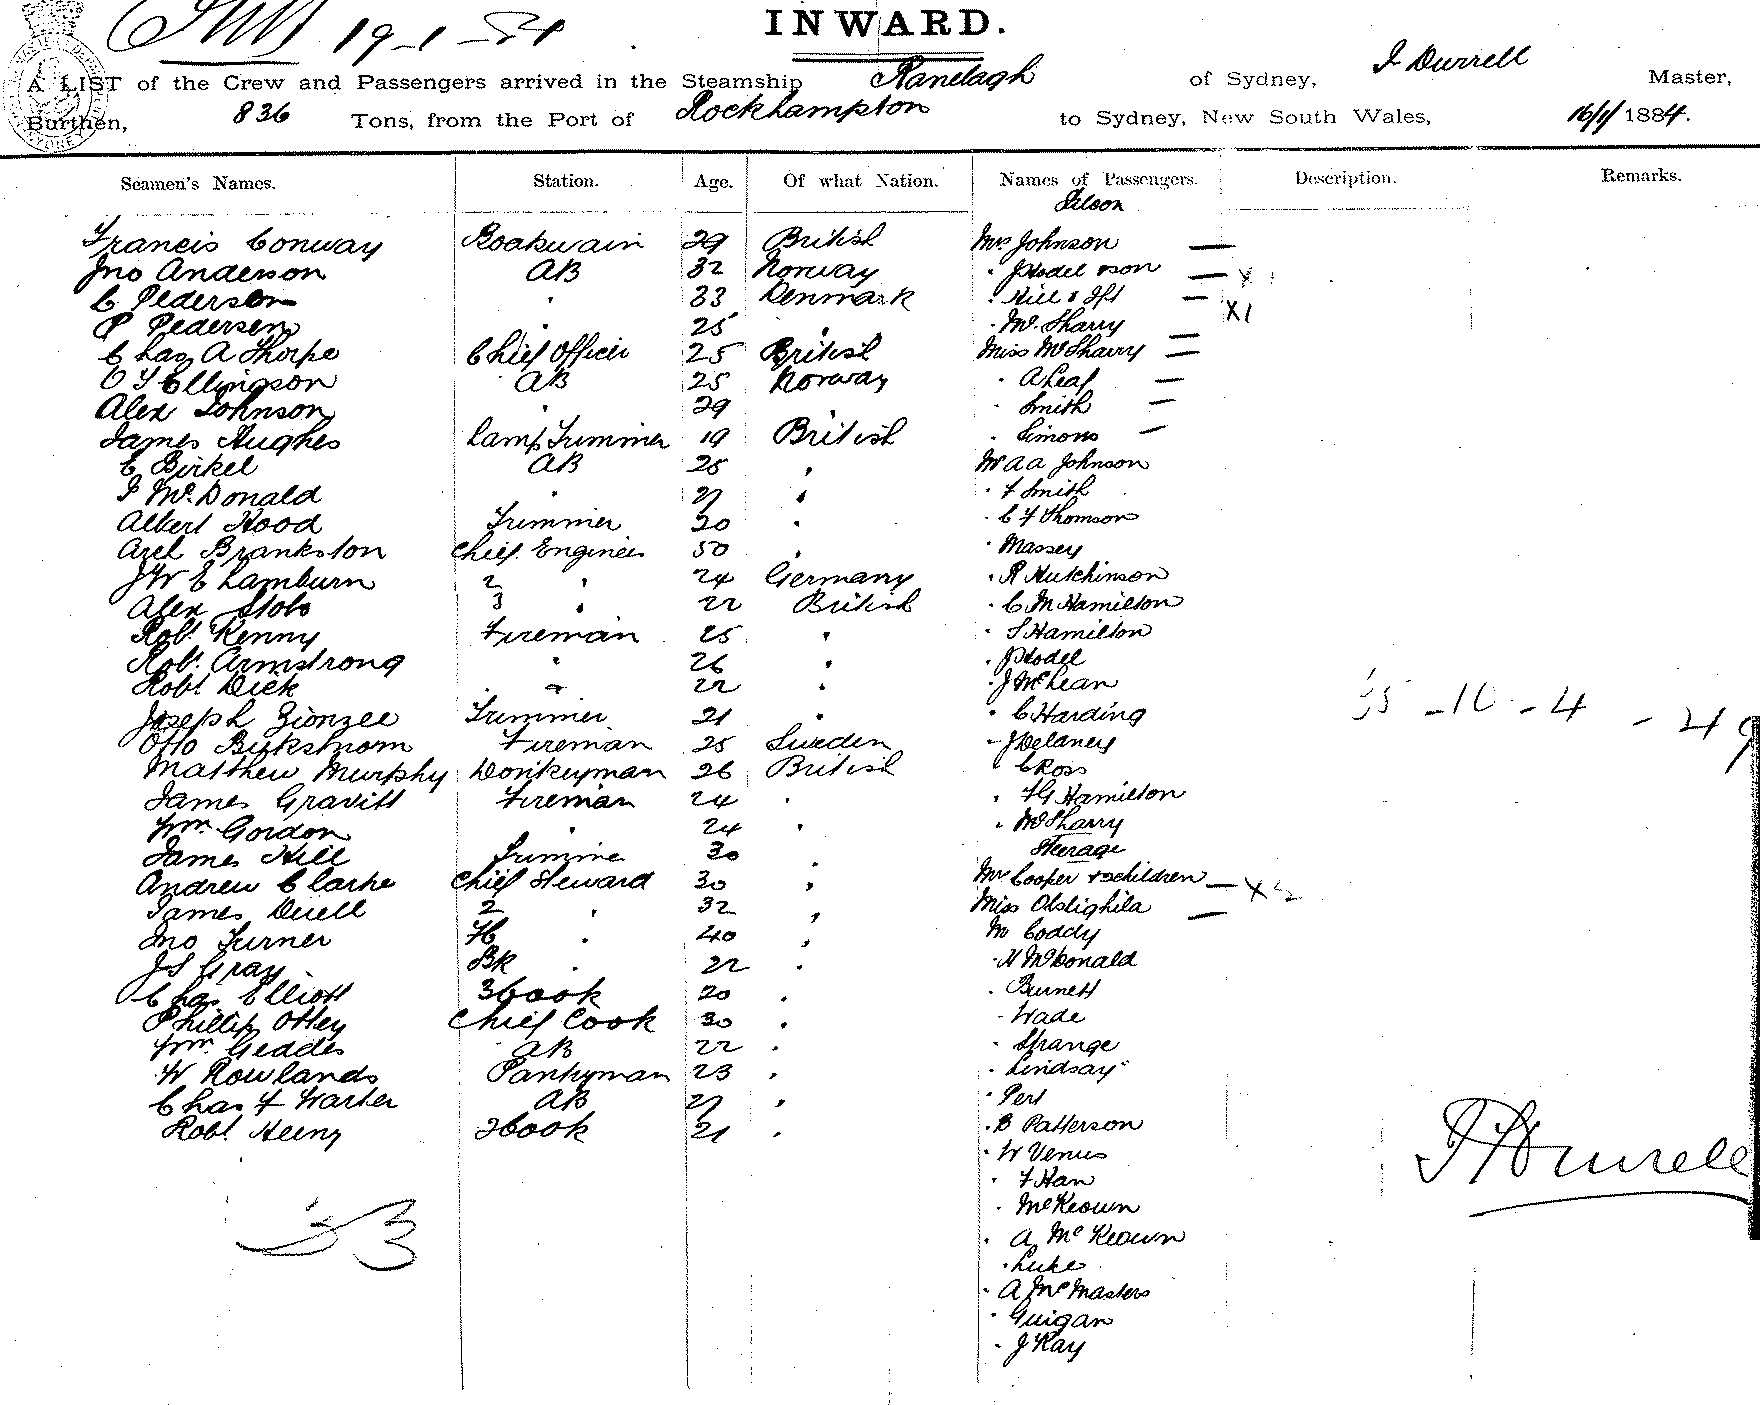 INWARD.
19-1-84
A LIST of the Crew and Passengers arrived in the Steamship Ranelagh of Sydney, J Durrell Master,
Burthen, 836 Tons, from the Port of Rockhampton to Sydney, New South Wales, 16/1/1884.
Seamen's Names. Station. Age. Of what Nation. Names of Passengers. Description. Remarks.
Saloon
Francis Conway Boatswain 29 British Mrs Johnson —
Jno Anderson AB 32 Norway " J Hodel & son — X 1
C Pederson " 33 Denmark " Hill & Ift — X1
P Pedersen " 25 " " McSharry —
Chas A Thorpe Chief Officer 25 British Miss McSharry —
O T Ellingson AB 25 Norway " A Leaf —
Alex Johnson " 29 " " Smith —
James Hughes Lamp Trimmer 19 British " Simons —
C Birkel AB 25 " Mr A A Johnson
J McDonald " 27 " " F Smith
Albert Hood Trimmer 20 " " C F Thomson
Axel Brankston Chief Engineer 50 " " Massey
J W Chamburn 2 " 24 Germany " R Hutchinson
Alex Stobo 3 " 22 British " C M Hamilton
Robt Kenny Fireman 25 " " S Hamilton
Robt Armstrong " 26 " " J Hodel
Robt Dick " 22 " " J McLean
Joseph Zionzee Trimmer 21 " " C Harding
Otto Birkstrom Fireman 25 Sweden " J Delaney
Matthew Murphy Donkeyman 26 British " C Ross
James Gravitt Fireman 24 " " F G Hamilton
Wm Gordon " 24 " " McSharry
Steerage
James Hill Trimmer 30 "
Andrew Clarke Chief Steward 30 " Mrs Cooper & children — X
James Duell 2 " 32 " Miss —
Jno Turner " 40 " Mr Coddy
J S Gray Bk " 22 " " H McDonald
Chas Elliott 3 Cook 20 " " Burnett
Phillip Ottey Chief Cook 30 " " Wade
Wm Geddes AB 22 " " Strange
W Rowlands Pantryman 23 " " Lindsay
Chas F Warher AB 27 " " Pert
Robt Heeny 2 Cook 21 " " B Patterson
" W Venus
" F Han
" McKeown
" A McKeown
" Luke
" A McMasters
" Guigan
" J Kay
35 - 10 - 4 - 49
33
J Durrell